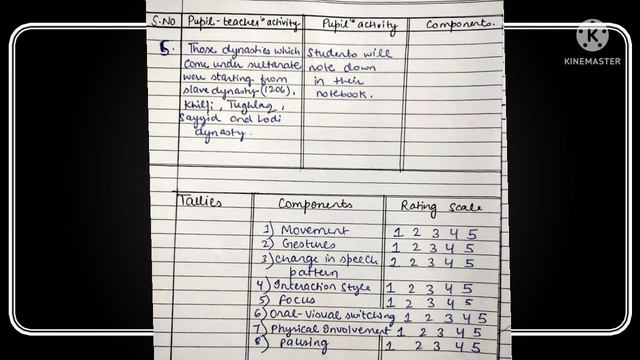 S.No Pupil-teacher's activity Pupil's activity Components.
5. Those dynasties which Students will
come under sultanate note down
were starting from in their
slave dynasty (1206), notebook.
Khilji, Tughlaq,
Sayyid and Lodi
dynasty.
Tallies Components Rating Scale
1) Movement 1 2 3 4 5
2) Gestures 1 2 3 4 5
3) Change in speech 1 2 3 4 5
pattern
4) Interaction Style 1 2 3 4 5
5) Focus 1 2 3 4 5
6) Oral-visual switching 1 2 3 4 5
7) Physical Involvement 1 2 3 4 5
8) Pausing 1 2 3 4 5
K
KINEMASTER